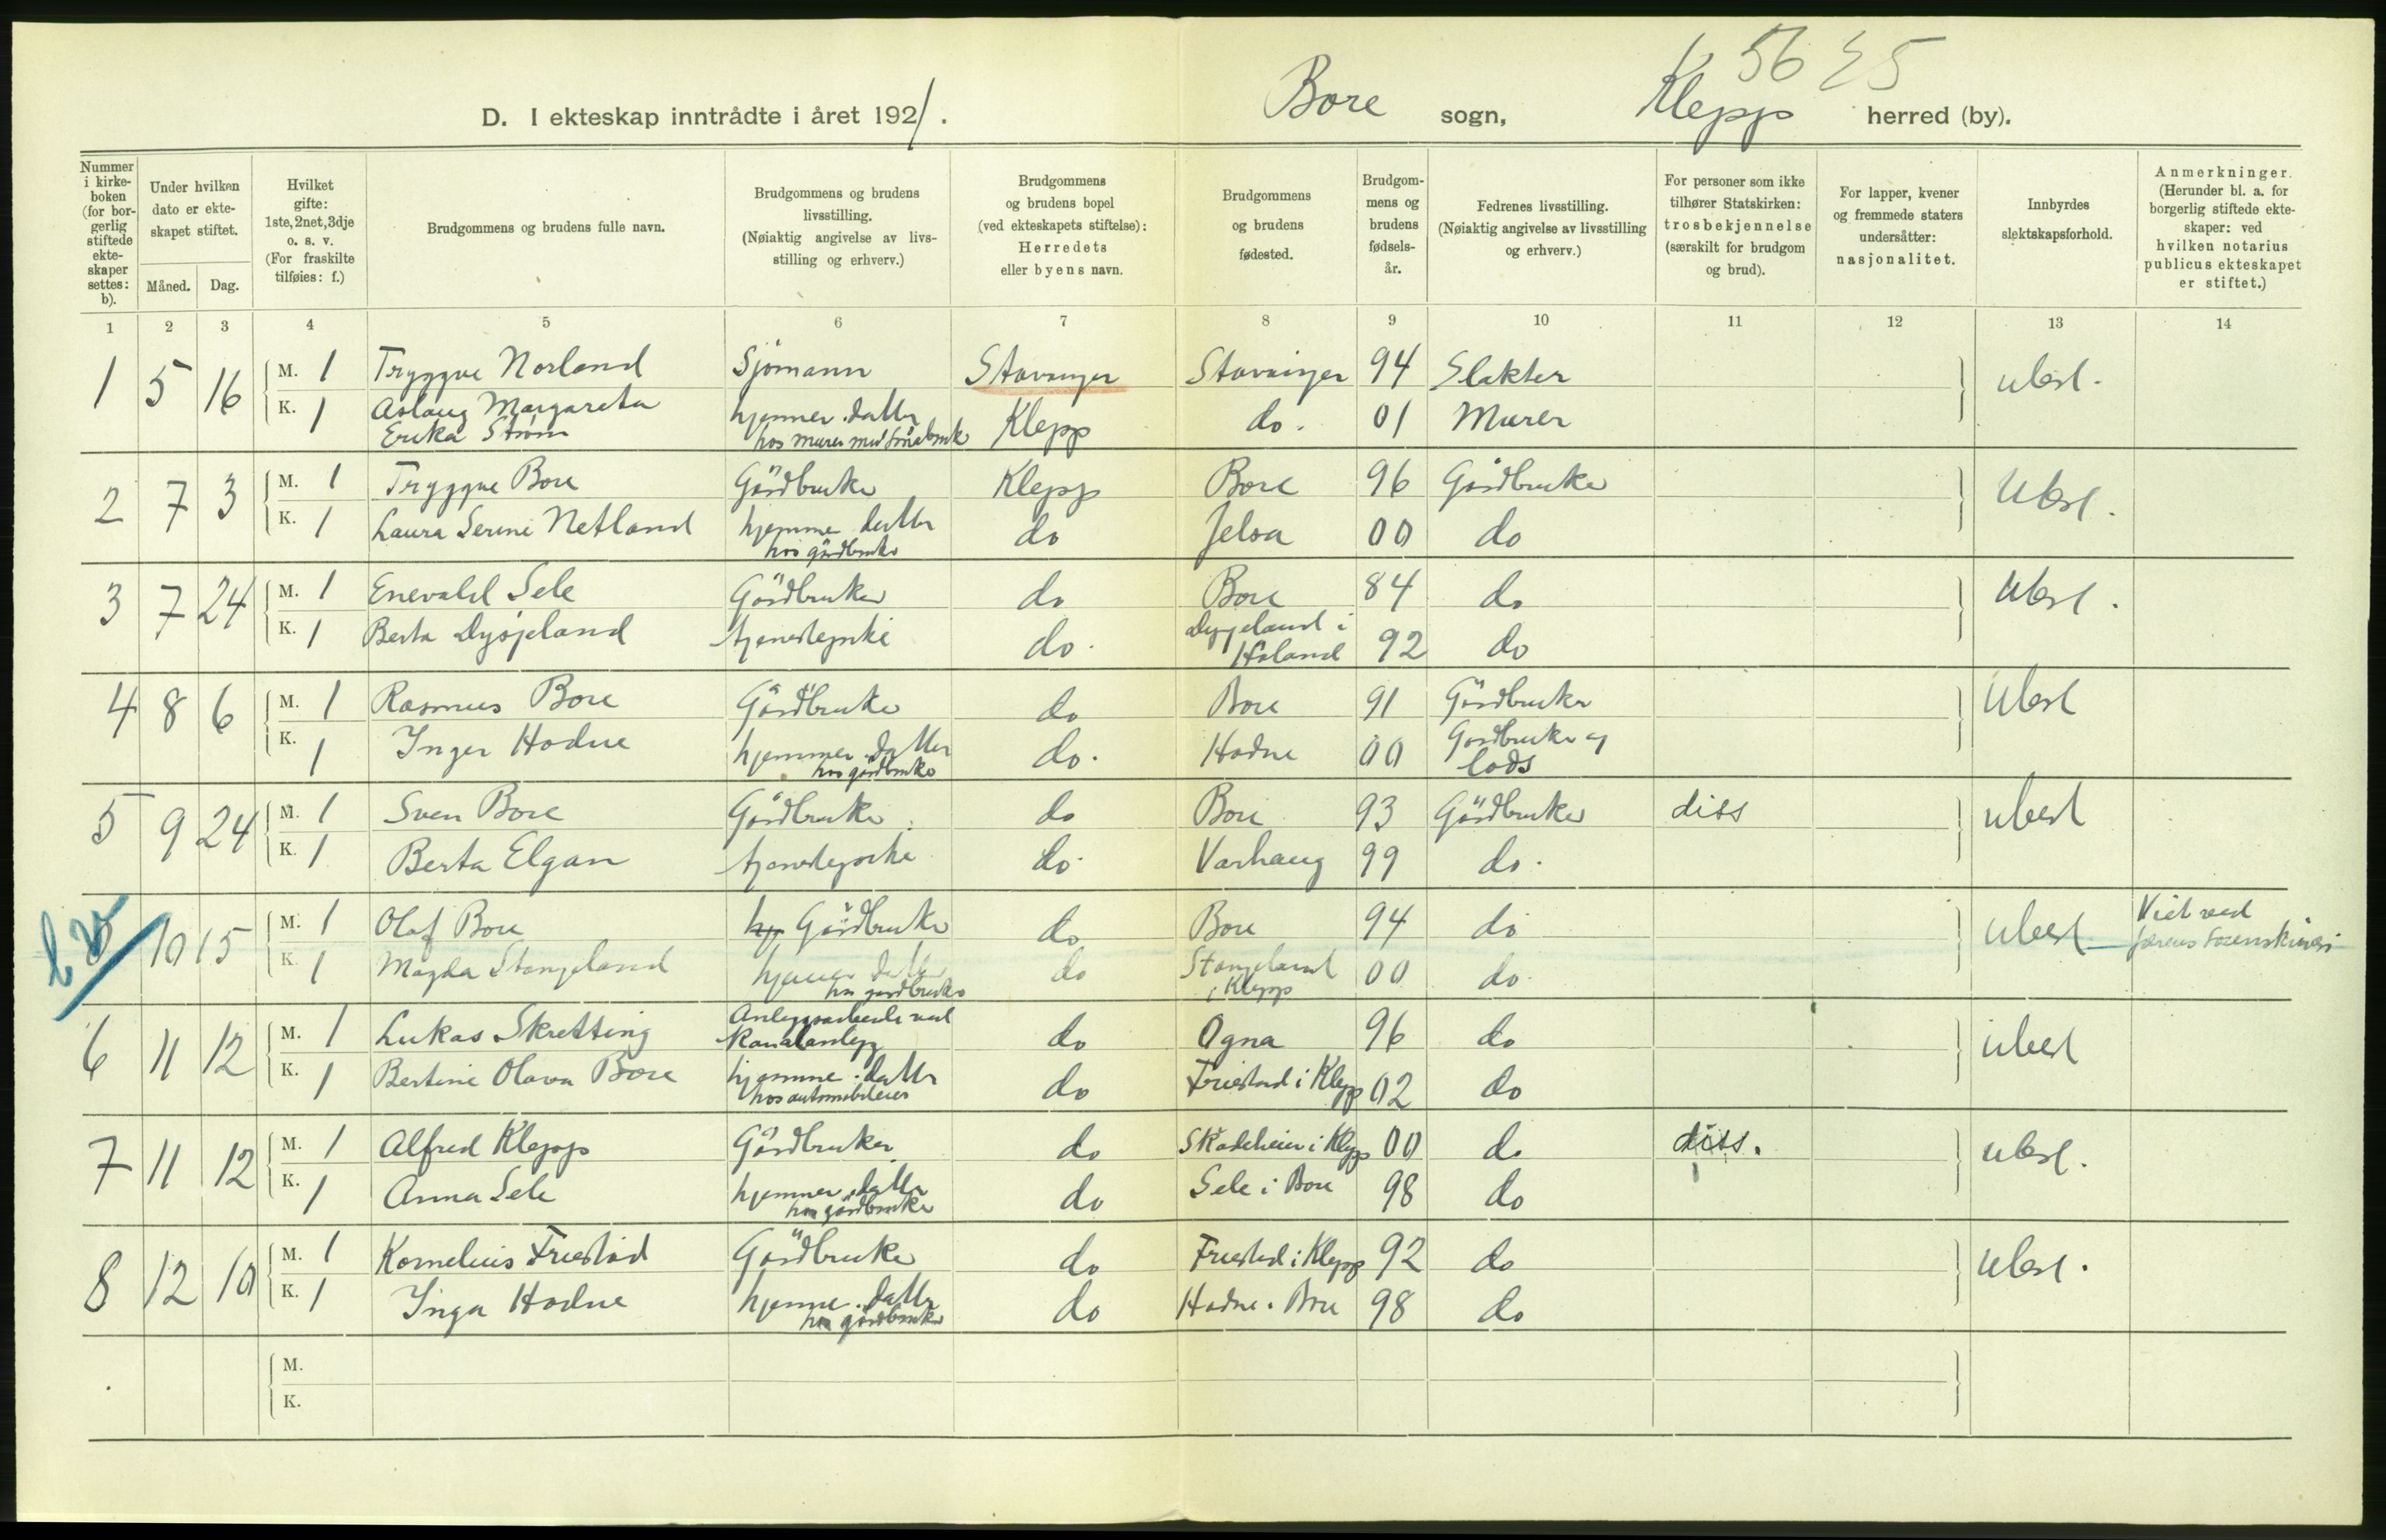 56 25
D. I ekteskap inntrådte i året 1921. Bore sogn, Klepp herred (by).
Nummer i kirkeboken (for borgerlig stiftede ekteskaper settes: b).
Under hvilken dato er ekteskapet stiftet.
Måned. Dag.
Hvilket gifte: 1ste, 2net, 3dje o. s. v. (For fraskilte tilføies: f.)
Brudgommens og brudens fulle navn.
Brudgommens og brudens livsstilling. (Nøiaktig angivelse av livsstilling og erhverv.)
Brudgommens og brudens bopel (ved ekteskapets stiftelse): Herredets eller byens navn.
Brudgommens og brudens fødested.
Brudgommens og brudens fødselsår.
Fedrenes livsstilling. (Nøiaktig angivelse av livsstilling og erhverv.)
For personer som ikke tilhører Statskirken: trosbekjennelse (særskilt for brudgom og brud).
For lapper, kvener og fremmede staters undersåtter: nasjonalitet.
Innbyrdes slektskapsforhold.
Anmerkninger. (Herunder bl. a. for borgerlig stiftede ekteskaper: ved hvilken notarius publicus ekteskapet er stiftet.)
1 2 3 4 5 6 7 8 9 10 11 12 13 14
1 5 16 M. 1 Tryggve Norland Sjömann Stavanger Stavanger 94 Slakter ubesl.
K. 1 Aslaug Margareta Erika Strøm hjemmev. datter hos murer med småbruk Klepp do. 01 Murer
2 7 3 M. 1 Tryggve Bore Gårdbruker Klepp Bore 96 Gårdbruker Ubesl.
K. 1 Laura Serine Netland hjemme datter hos gårdbruker do Jelsa 00 do
3 7 24 M. 1 Enevald Sele Gårdbruker do Bore 84 do Ubesl.
K. 1 Berta Dysjeland tjenestepike do. Dysjeland i Høland 92 do
4 8 6 M. 1 Rasmus Bore Gårdbruker do Bore 91 Gårdbruker Ubesl
K. 1 Inger Hodne hjemmev. datter hos gårdbruker do. Hodne 00 Gårdbruker og lods
5 9 24 M. 1 Sven Bore Gårdbruker do Bore 93 Gårdbruker diss ubesl
K. 1 Berta Elgan tjenestepike do. Varhaug 99 do.
10 15 M. 1 Olaf Bore Gårdbruker do Bore 94 do ubesl Viet ved Jærens Sorenskriveri
K. 1 Magda Stangeland hjemmev datter hos gårdbruker do Stangeland i Klepp 00 do
6 11 12 M. 1 Lukas Skretting Anleggsarbeider ved Kanalanlegg do Ogna 96 do ubesl
K. 1 Bertine Olava Bore hjemme. datter hos automobileier do Friestad i Klepp 02 do
7 11 12 M. 1 Alfred Klepp Gårdbruker do Skadeheien i Klepp 00 do diss. ubesl.
K. 1 Anna Sele hjemmev. datter hos gårdbruker do Sele i Bore 98 do
8 12 10 M. 1 Kornelius Friestad Gårdbruker do Friestad i Klepp 92 do ubesl.
K. 1 Inga Hodne hjemme. datter hos gårdbruker do Hodne i Bore 98 do
M.
K.